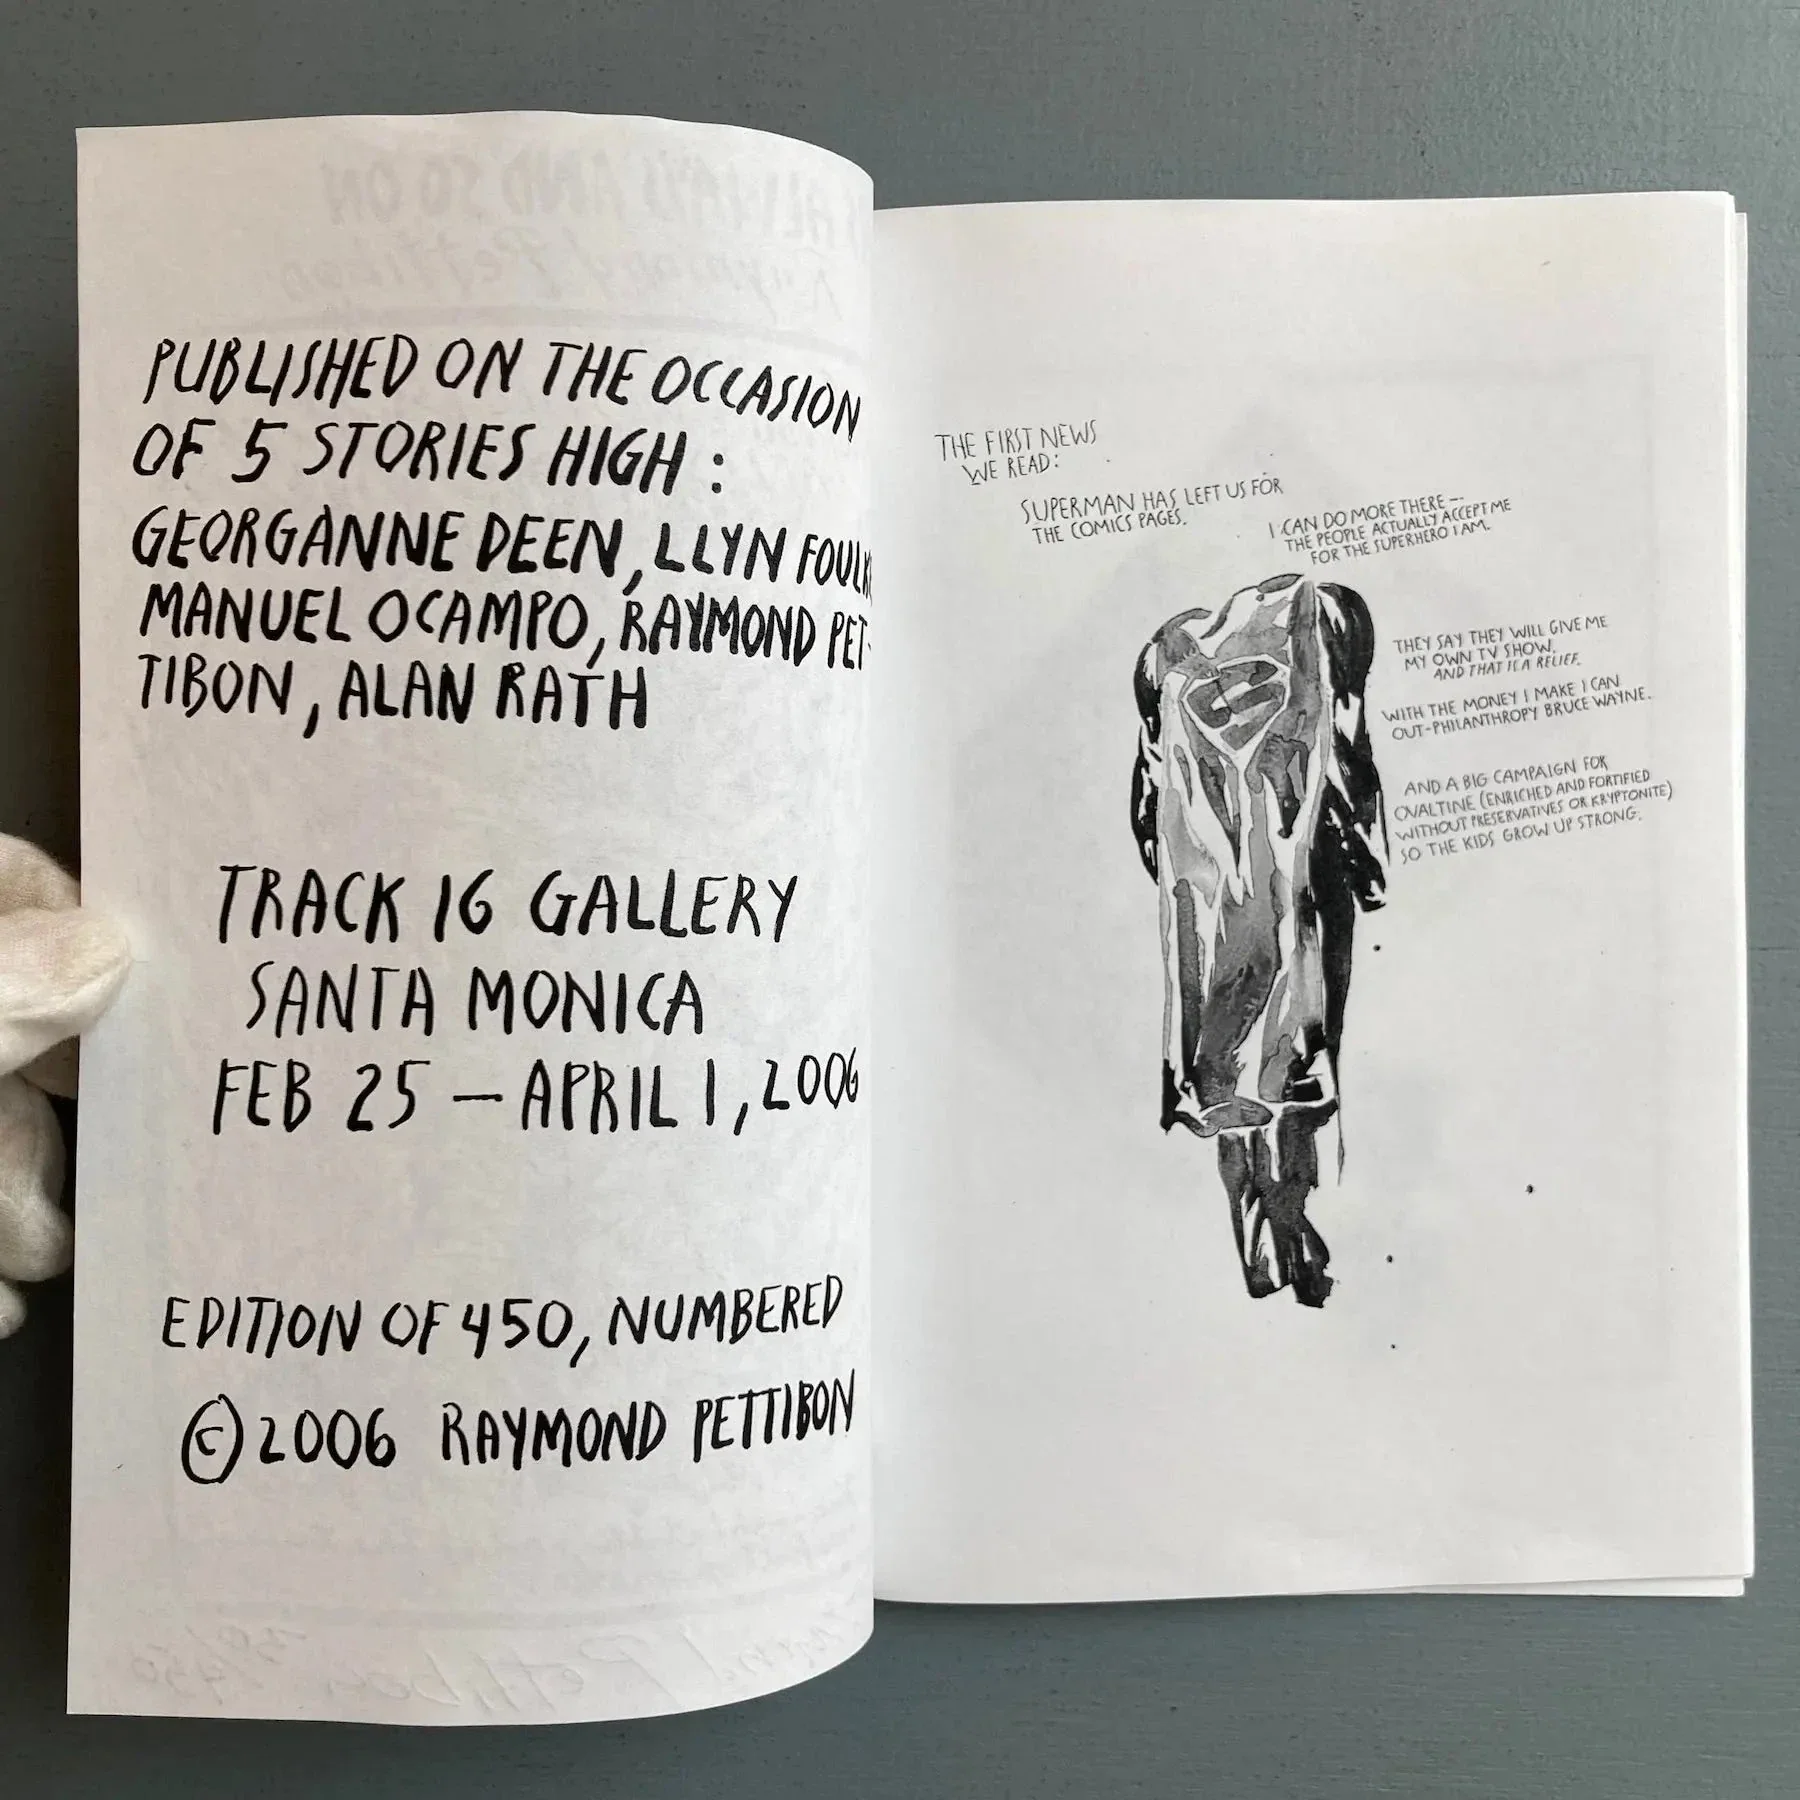 PUBLISHED ON THE OCCASION
OF 5 STORIES HIGH :
GEORGANNE DEEN, LLYN FOULK
MANUEL OCAMPO, RAYMOND PET-
TIBON, ALAN RATH
TRACK 16 GALLERY
SANTA MONICA
FEB 25 — APRIL 1, 2006
EDITION OF 450, NUMBERED
© 2006 RAYMOND PETTIBON
THE FIRST NEWS
WE READ:
SUPERMAN HAS LEFT US FOR
THE COMICS PAGES.
I CAN DO MORE THERE —
THE PEOPLE ACTUALLY ACCEPT ME
FOR THE SUPERHERO I AM.
THEY SAY THEY WILL GIVE ME
MY OWN TV SHOW,
AND THAT IS A RELIEF.
WITH THE MONEY I MAKE I CAN
OUT-PHILANTHROPY BRUCE WAYNE.
AND A BIG CAMPAIGN FOR
OVALTINE (ENRICHED AND FORTIFIED
WITHOUT PRESERVATIVES OR KRYPTONITE)
SO THE KIDS GROW UP STRONG.